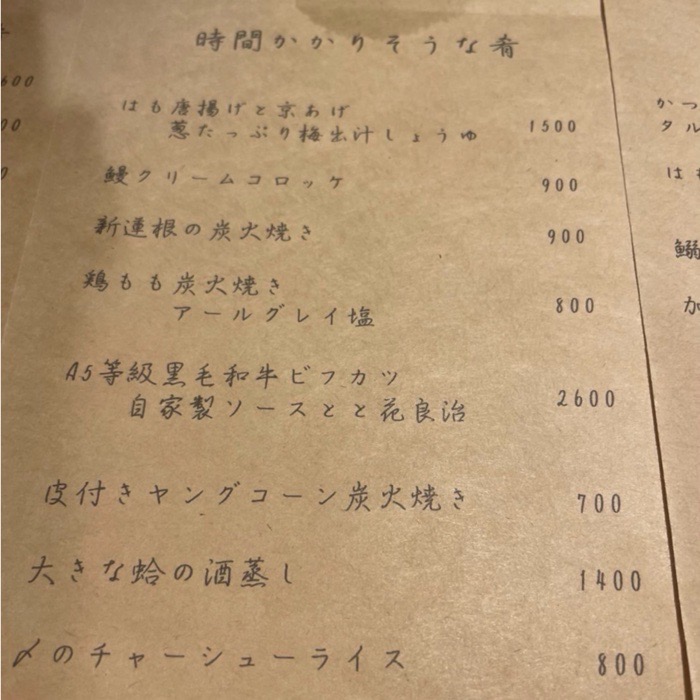 時間かかりそうな肴
はも唐揚げと京あげ
葱たっぷり梅出汁しょうゆ 1500
鰻クリームコロッケ 900
新蓮根の炭火焼き 900
鶏もも炭火焼き
アールグレイ塩 800
A5等級黒毛和牛ビフカツ
自家製ソースとと花良治 2600
皮付きヤングコーン炭火焼き 700
大きな蛤の酒蒸し 1400
〆のチャーシューライス 800
600
00
0
かつ
タル
は
鰯
加